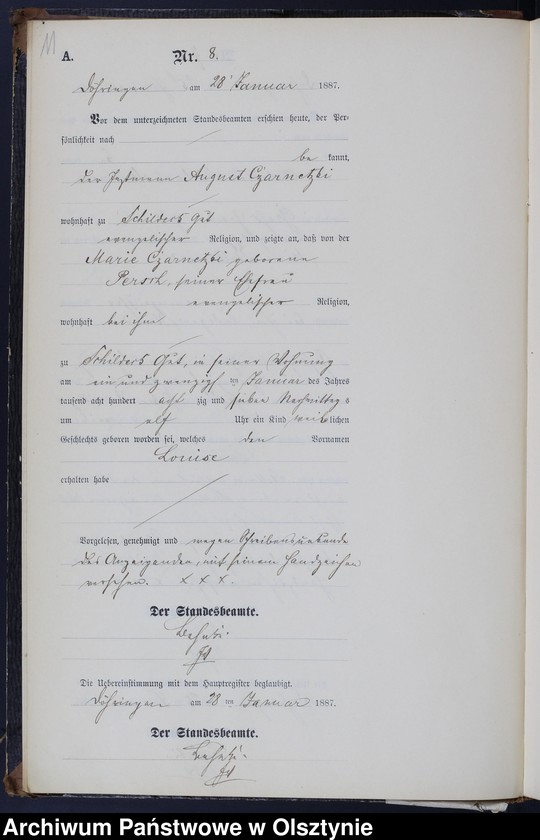 11
A.
Nr. 8.
Döhringen am 28ᵗ Januar 1887.
Vor dem unterzeichneten Standesbeamten erschien heute, der Per-
sönlichkeit nach
be kannt,
der Instmann August Czarnetzki
wohnhaft zu Schilders Gut
evangelischer Religion, und zeigte an, daß von der
Marie Czarnetzki geborene
seiner Ehefrau
evangelischer Religion,
wohnhaft bei ihm
zu Schilders Gut, in seiner Wohnung
am ein und zwanzigs ten Januar des Jahres
tausend acht hundert acht zig und sieben Nachmittags
um elf Uhr ein Kind weib lichen
Geschlechts geboren worden sei, welches den Vornamen
Louise
erhalten habe
Vorgelesen, genehmigt und wegen Schreibensunkunde
des Anzeigenden, mit seinem Handzeichen
versehen. x x x.
Der Standesbeamte.
Die Uebereinstimmung mit dem Hauptregister beglaubigt.
Döhringen am 28 ten Januar 1887.
Der Standesbeamte.
Archiwum Państwowe w Olsztynie